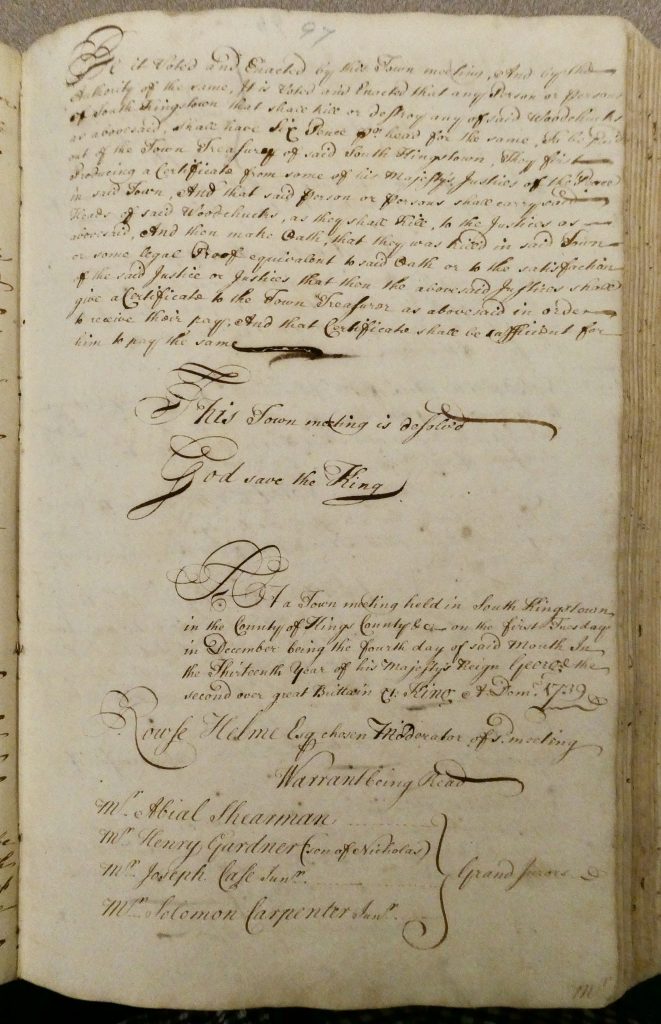 97
Be it Voted and Enacted by this Town meeting, And by the
Authority of the same, It is Voted and Enacted that any Person or persons
of South Kingstown that shall kill or destroy any of said Woodchucks
as abovesaid, shall have Six Pence pr. head for the same, to be Paid
out of the Town Treasury of said South Kingstown, they first
Producing a Certificate from some of his Majestys Justices of the Peace
in said Town, And that said Person or Persons shall carry said
Heads of said Woodchucks, as they shall kill, to the Justices as
abovesaid, And then make Oath, that they was kiled in said Town
or some legal Proof equivalent to said Oath or to the satisfaction
of the said Justice or Justices that then the abovesaid Justices shall
give a Certificate to the Town Treasurer as abovesaid in order
to receive their pay, And that Certificate shall be sufficient for
him to pay the same
This Town meeting is desolved
God save the King
At a Town meeting held in South Kingstown
in the County of Kings County &c on the first Tusday
in December being the fourth day of said Month In
the Thirteenth Year of his Majestys Reign George the
second over great Brittain &. King A Dom. 1739
Rowse Helme Esq. chosen Moderator of sd. meeting
Warrant being Read
Mr. Abial Shearman
Mr. Henry Gardner (son of Nicholas)
Mr. Joseph Case Junr.
Mr. Solomon Carpenter Junr.
Grand Jurors
Mr